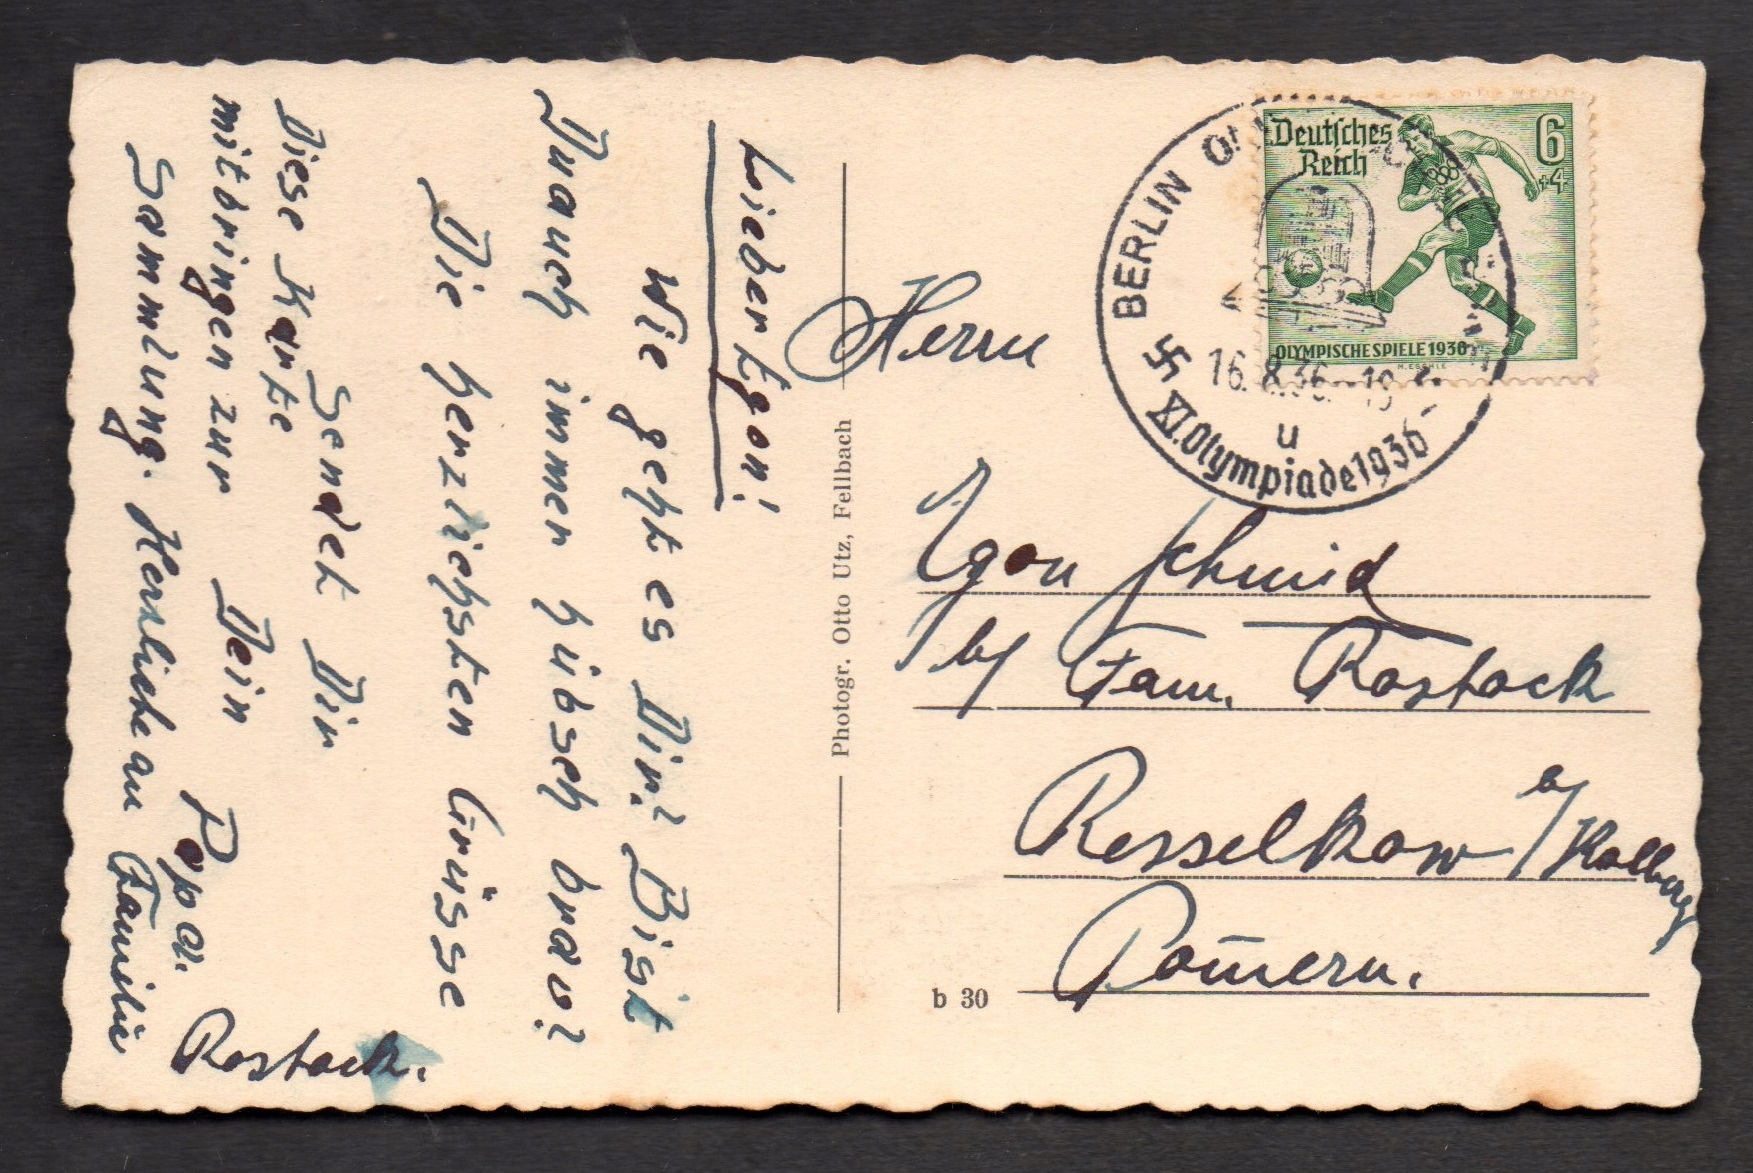 Lieber Egon!
Wie geht es Dir? Bist
Du auch immer hübsch brav?
Die herzlichsten Grüsse
Sendet Dir
Dein Papa.
Diese Karte
mitbringen zur
Sammlung. Herzliche an Familie
Rostock.
Photogr. Otto Utz, Fellbach
BERLIN
16.8.36.
u
XI.Olympiade1936
Deutsches
Reich
6
+4
OLYMPISCHE SPIELE 1936
Herrn
Egon Schmid
b/ Fam. Rostock
Resselkow b/Kolberg
Pom̅ern.
b 30